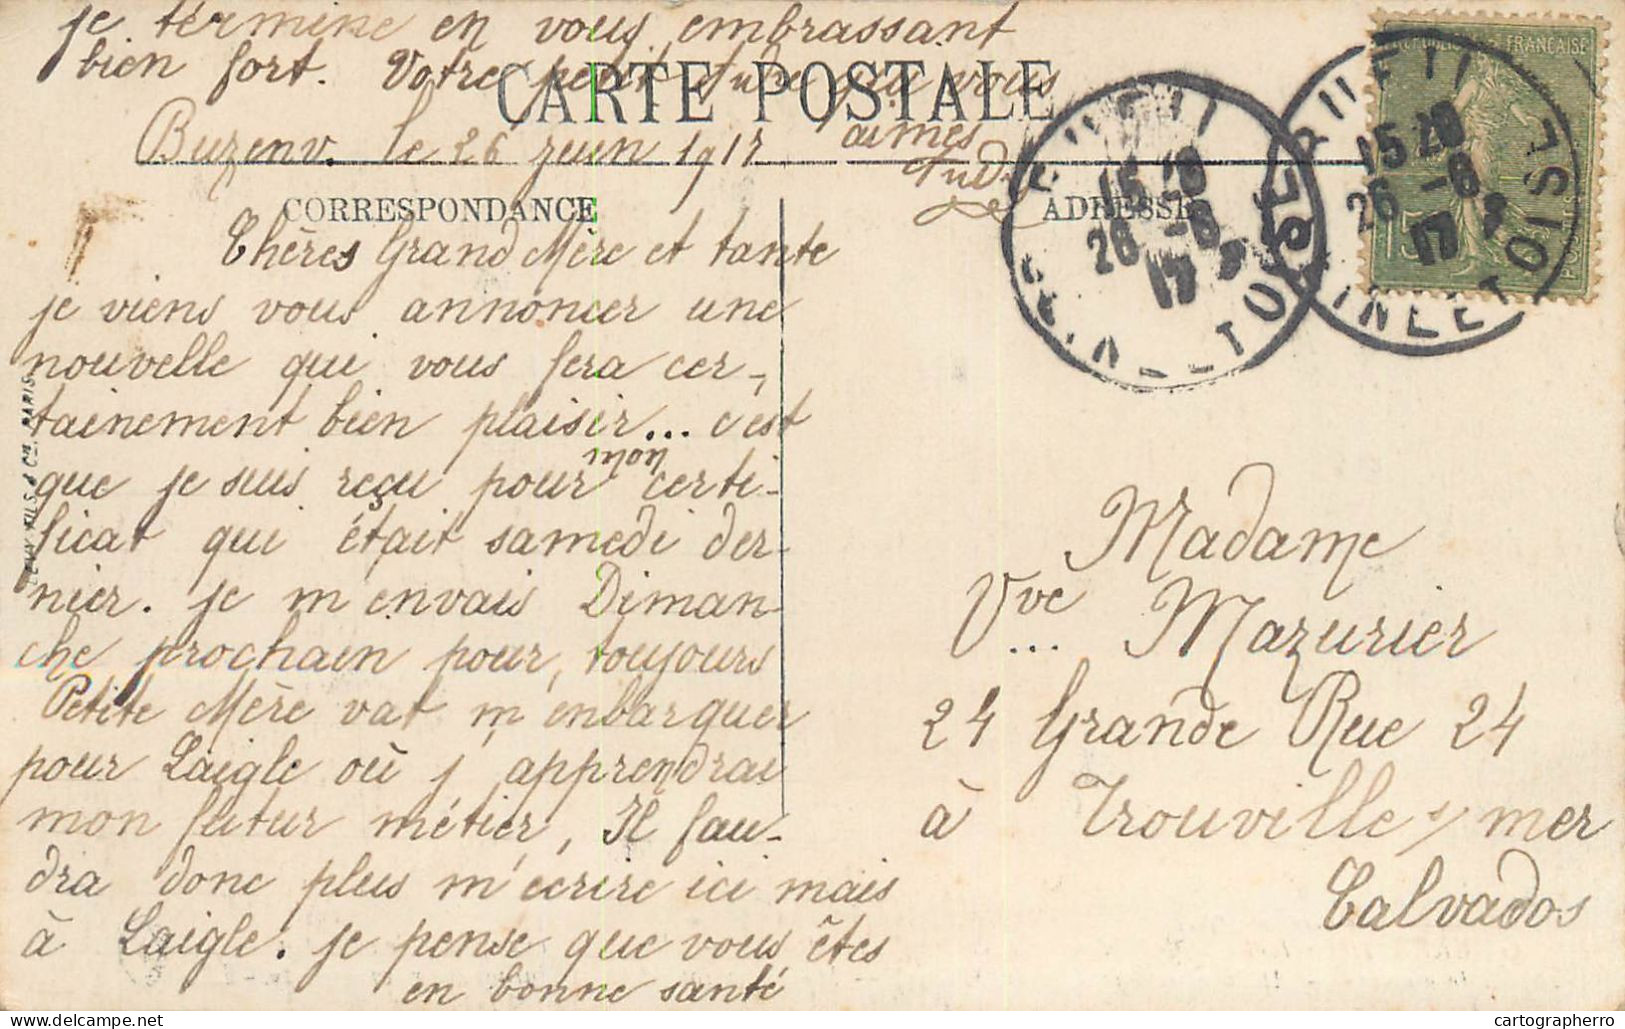 je termine en vous embrassant
bien fort. Votre petit qui vous
aimes
CARTE POSTALE
Buzenv. le 26 juin 1917
CORRESPONDANCE
ADRESSE
Chères Grand Mère et tante
je viens vous annoncer une
nouvelle qui vous fera cer-
tainement bien plaisir... c'est
que je suis reçu pour mon certi-
ficat qui était samedi der-
nier. je m'envais Diman-
che prochain pour, toujours
Petite Mère vat m'enbarquer
pour Laigle où j'apprendrai
mon futur métier, Il fau-
dra donc plus m'écrire ici mais
à Laigle. je pense que vous êtes
en bonne santé
Madame
Vve Mazurier
24 Grande Rue 24
à Trouville s/ mer
Calvados
REPUBLIQUE FRANÇAISE
15
POSTES
RUEIL
15 20
26 -6
17
SEINE ET OISE
RUEIL
15 20
26 -6
17
LEVY FILS & Cie, PARIS
cartographerro